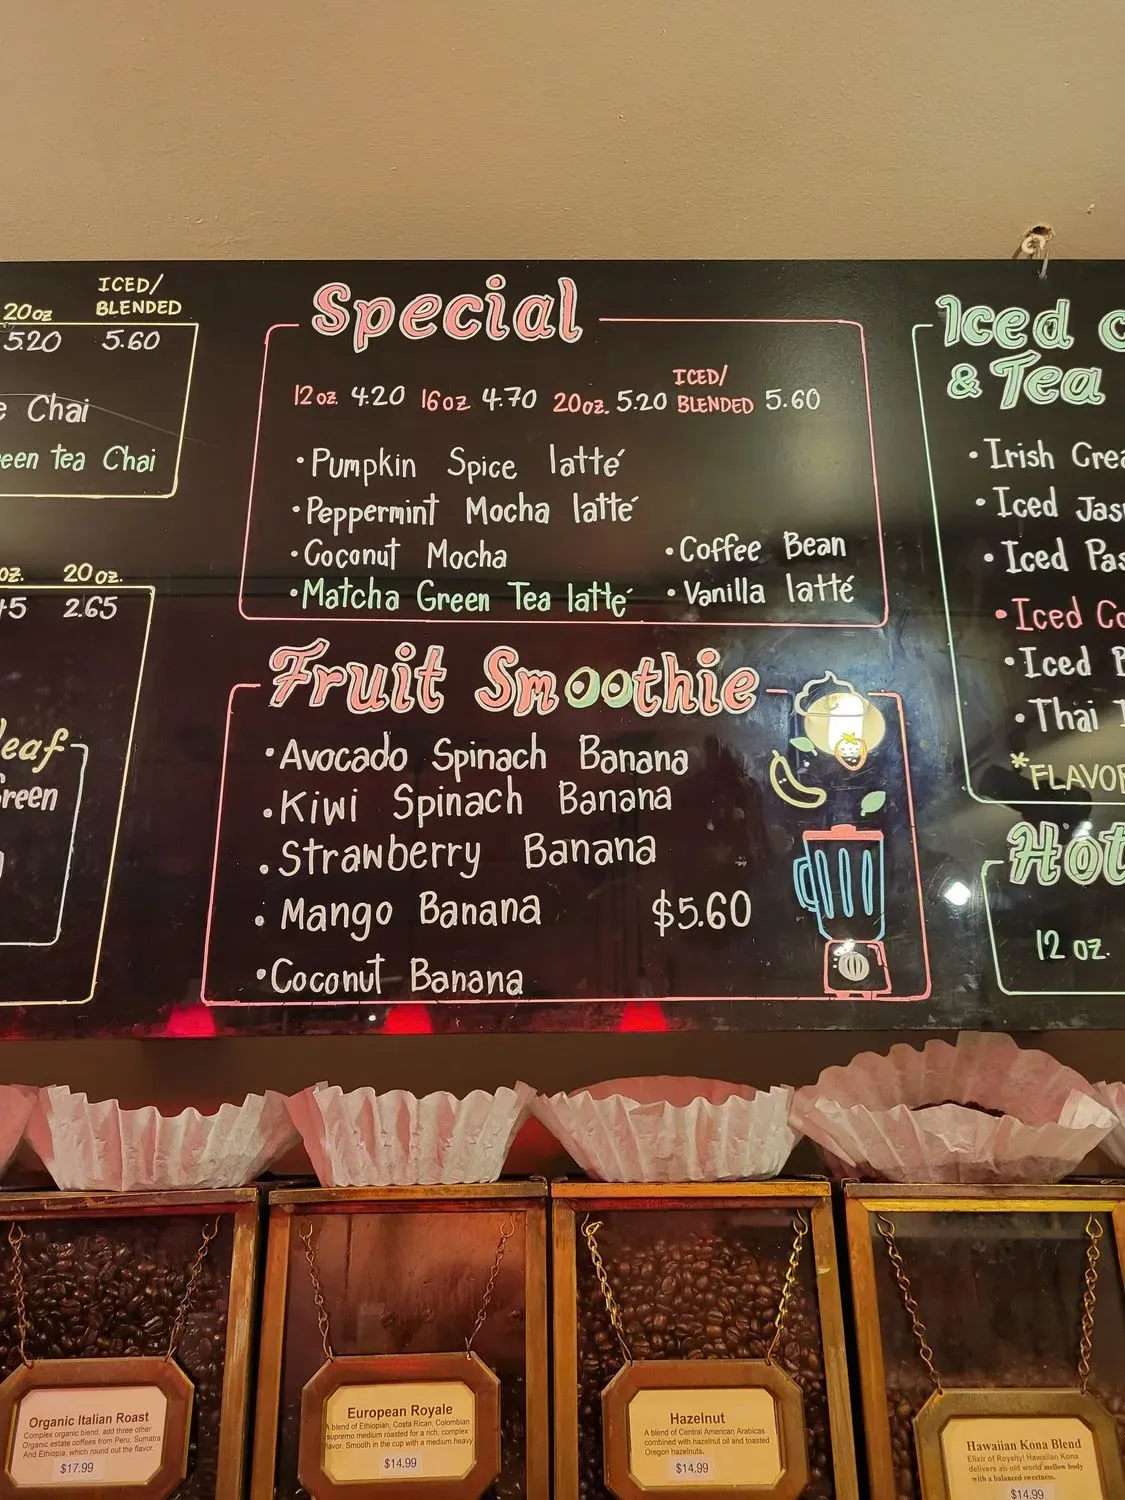 20oz
ICED/
BLENDED
5.20 5.60
Chai
tea Chai
20 oz.
2.65
Special
12oz. 4.20 16oz 4.70 20oz. 5.20 ICED/
BLENDED 5.60
• Pumpkin Spice latté
• Peppermint Mocha latté
• Coconut Mocha
• Matcha Green Tea latté
• Coffee Bean
• Vanilla latté
Fruit Smoothie
• Avocado Spinach Banana
• Kiwi Spinach Banana
• Strawberry Banana
• Mango Banana $5.60
• Coconut Banana
Iced
& Tea
• Irish
• Iced
• Iced
• Iced
• Iced
• Thai
12 oz.
Organic Italian Roast
Complex organic blend, add three other
Organic estate coffees from Peru, Sumatra
And Ethiopia, which round out the flavor.
$17.99
European Royale
A blend of Ethiopian, Costa Rican, Colombian
supremo medium roasted for a rich, complex
flavor. Smooth in the cup with a medium heavy
$14.99
Hazelnut
A blend of Central American Arabicas
combined with hazelnut oil and toasted
Oregon hazelnuts.
$14.99
Hawaiian Kona Blend
Elixir of Royalty! Hawaiian Kona
delivers an old world mellow body
with a balanced sweetness.
$14.99